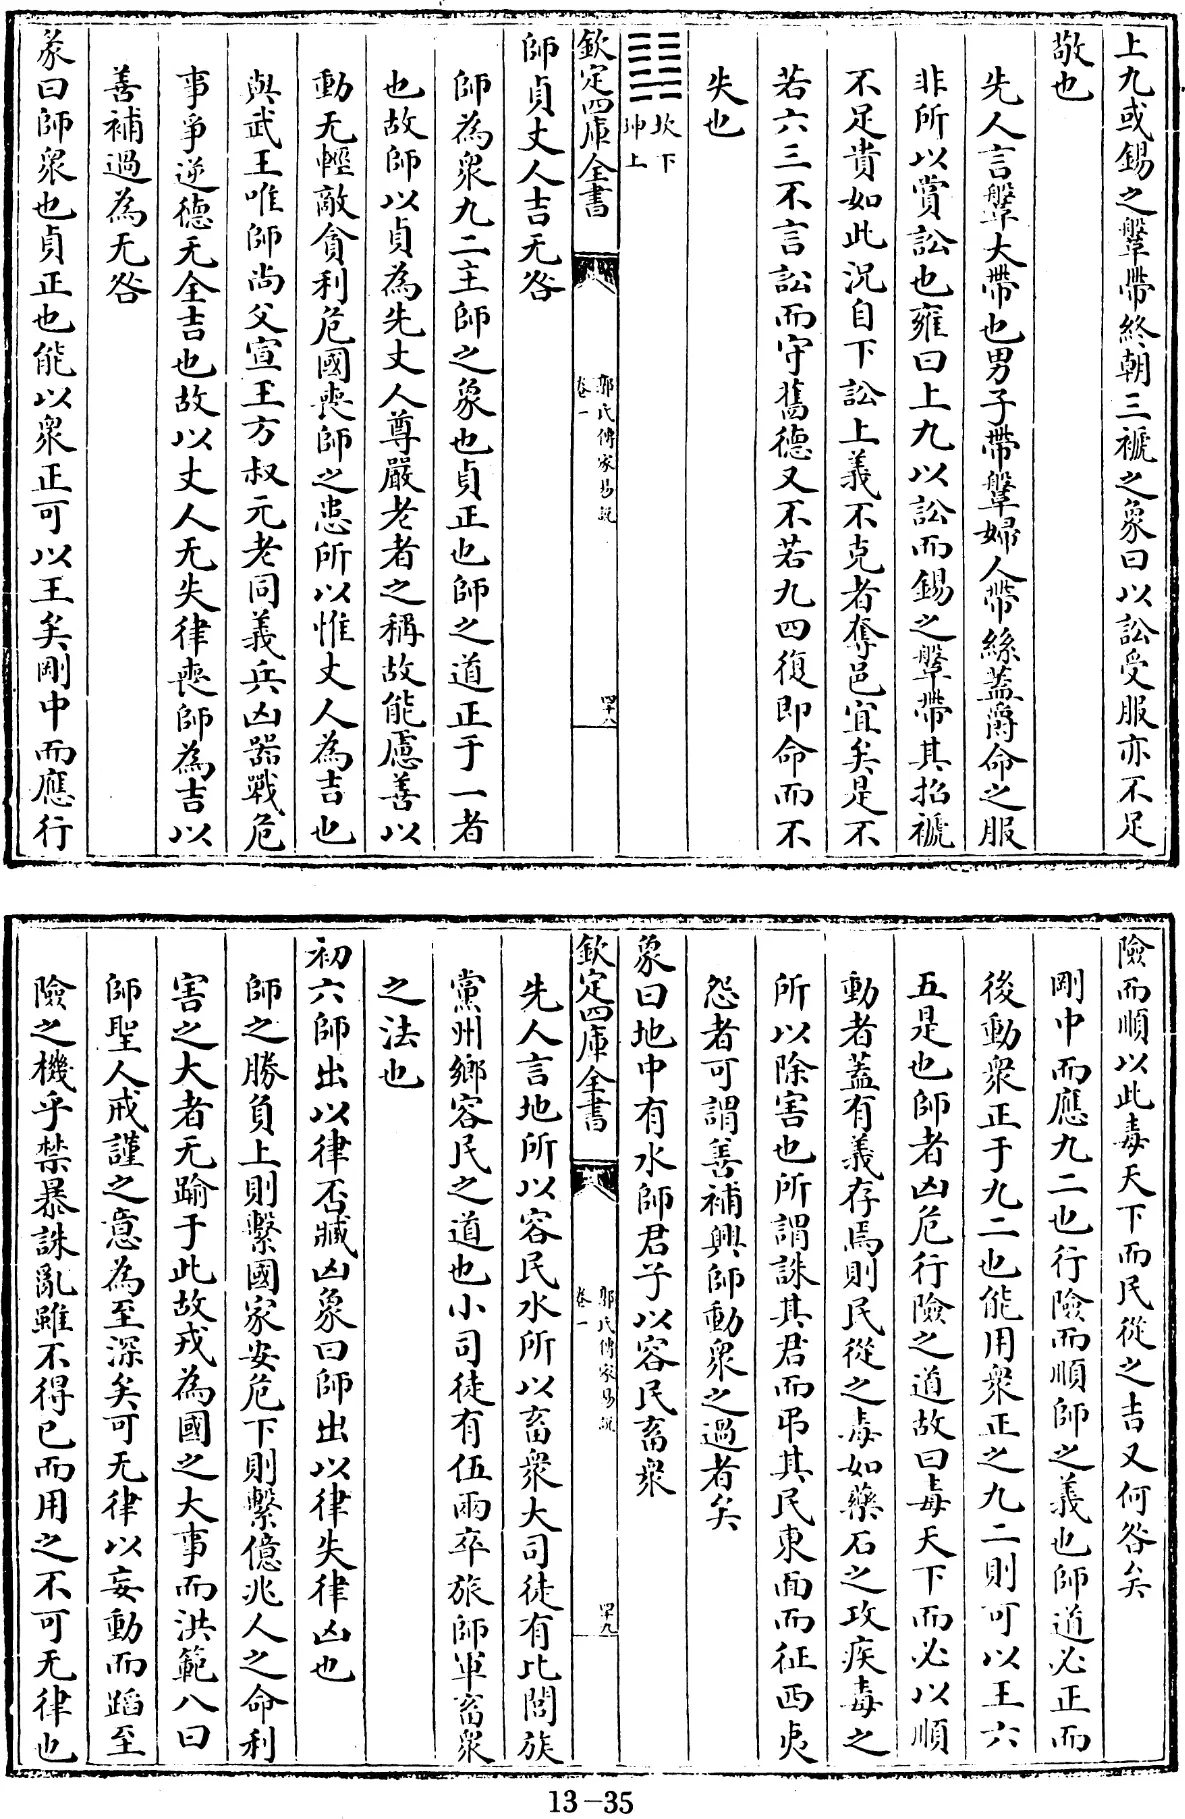 上九或錫之鞶帶終朝三褫之象曰以訟受服亦不足
敬也
先人言鞶大帶也男子帶鞶婦人帶絲蓋爵命之服
非所以賞訟也雍曰上九以訟而錫之鞶帶其招褫
不足貴如此况自下訟上義不克者奪邑宜矣是不
若六三不言訟而守舊德又不若九四復即命而不
失也
坎下
坤上
欽定四庫全書
郭氏傳家易說
卷一
四十八
師貞丈人吉无咎
師為衆九二主師之象也貞正也師之道正于一者
也故師以貞為先丈人尊嚴老者之稱故能慮善以
動无輕敵貪利危國喪師之患所以惟丈人為吉也
與武王唯師尚父宣王方叔元老同義兵凶器戰危
事爭逆德无全吉也故以丈人无失律喪師為吉以
善補過為无咎
彖曰師衆也貞正也能以衆正可以王矣剛中而應行
險而順以此毒天下而民從之吉又何咎矣
剛中而應九二也行險而順師之義也師道必正而
後動衆正于九二也能用衆正之九二則可以王六
五是也師者凶危行險之道故曰毒天下而必以順
動者蓋有義存焉則民從之毒如藥石之攻疾毒之
所以除害也所謂誅其君而弔其民東面而征西夷
怨者可謂善補興師動衆之過者矣
象曰地中有水師君子以容民畜衆
欽定四庫全書
郭氏傳家易說
卷一
四十九
先人言地所以容民水所以畜衆大司徒有比閭族
黨州鄉容民之道也小司徒有伍兩卒旅師軍畜衆
之法也
初六師出以律否臧凶象曰師出以律失律凶也
師之勝負上則繫國家安危下則繫億兆人之命利
害之大者无踰于此故戎為國之大事而洪範八曰
師聖人戒謹之意為至深矣可无律以妄動而蹈至
險之機乎禁暴誅亂雖不得已而用之不可无律也
13-35